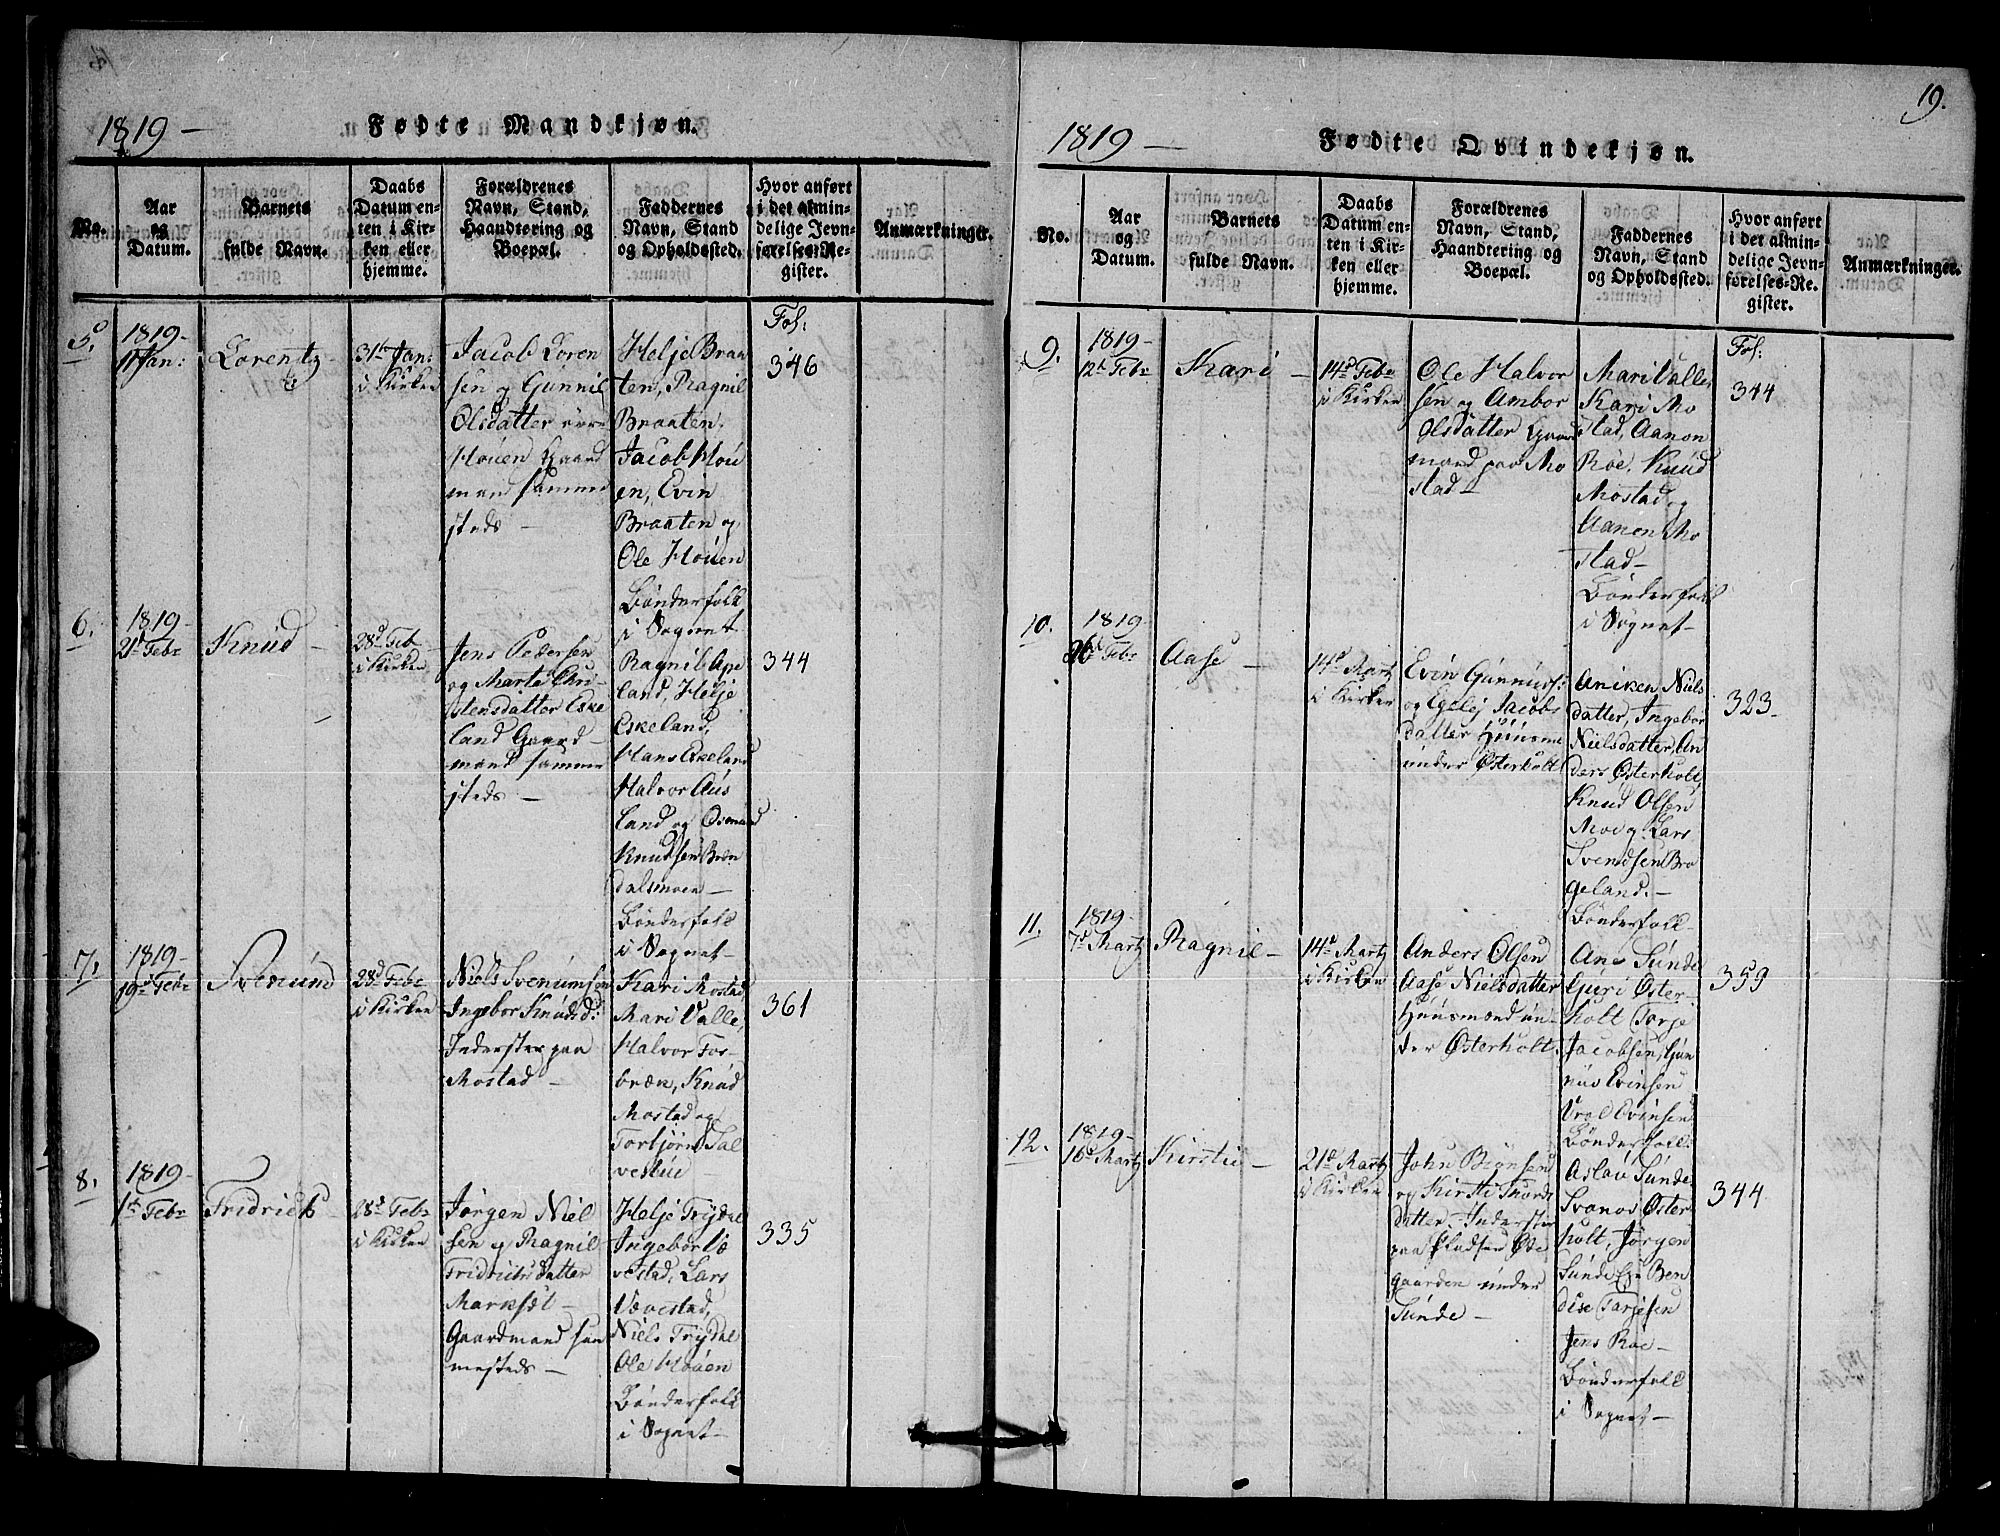 19.
1819 –
Fødte Mandkjøn.
No.
Aar
og
Datum.
Barnets
fulde Navn.
Daabs
Datum en-
ten i Kir-
ken eller
hjemme.
Forældrenes
Navn, Stand,
Haandtering og
Boepæl.
Faddernes
Navn, Stand
og Opholdssted.
Hvor anført
i det almin-
delige Jevn-
førelses-Re-
gister.
Anmærkninger.
5.
1819–
11 Jan:
Lorentz
31te Jan:
i Kirken
Jacob Loren
sen og Gunnil
Olsdatter
Houen Gaard
mand samme
steds –
Helje Braa
ten, Ragnil
Braaten,
Jacob Hou
en, Evin
Braaten og
Ole Houen
Bønderfolk
i Sognet
Fol:
346
6.
1819–
21 Febr
Knud
28d Feb
i Kirken
Jens Pedersen
og Marte Chri-
stensdatter Eske
land Gaard-
mand samme
steds –
Ragnil Ape
land, Helje
Eskeland,
Hans Eskeland
Halvor Aus
land og Osmund
Knudsen Bræn
dalsmoen –
Bønderfolk
i Sognet–
344
7.
1819–
19de Febr
Svenund
28d Febr
i Kirken
Niels Svenumsen
Ingebor Knudsd:
Inderster paa
Mostad –
Kari Mostad,
Mari Valle,
Halvor Tor-
bræk, Knud
Mostad og
Torbjørn Sal
veskud
361
8.
1819–
1te Febr
Fridrich
28d Febr
i Kirken
Jørgen Niel
sen og Ragnil
Fridrichsdatter
Marksæt –
Gaardmand sam
mesteds –
Helje Trydal
Ingebor Væ
vestad, Lars
Vævestad,
Niels Trydal
Ole Houen
Bønderfolk
i Sognet–
335
1819 –
Fødte Qvindekjøn.
No.
Aar
og
Datum.
Barnets
fulde Navn.
Daabs
Datum en-
ten i Kir-
ken eller
hjemme.
Forældrenes
Navn, Stand,
Haandtering og
Boepæl.
Faddernes
Navn, Stand
og Opholdssted.
Hvor anført
i det almin-
delige Jevn-
førelses-Re-
gister.
Anmærkninger.
9.
1819–
12te Febr
Kari –
14d Febr
i Kirken
Ole Halvor
sen og Ambor
Olsdatter Gaard
mand paa Mo
stad –
Mari Valle,
Kari Mo
stad, Aanon
Røe, Knud
Mostad og
Aanen Mo
stad –
Bønderfolk
i Sognet–
Fol:
344
10.
1819–
26 Febr
Aase –
14d Martz
i Kirken
Evin Gunnufs:
og Egelej Jacobs
datter Huusm
under Østerholt
Aniken Niels
datter, Ingebor
Nielsdatter, An
ders Østerholt,
Knud Olsen
Moe og Lars
Svendsen Bro
geland. –
Bønderfolk
323–
11.
1819–
7d Martz
Ragnil –
14d Martz
i Kirken
Anders Olsen
Aase Nielsdatter
Huusmand un-
der Østerholt.
Ane Sunde
Guri Øster-
holt Tarje
Jacobsen, Gun
nuv Evinsen
Evinsen
Bønderfolk
359
12.
1819–
16d Martz
Kirsti –
21d Martz
i Kirken
John Biønsen
og Kirsti Thords
datter – Inderster
paa Pladsen Øde
gaarden under
Sunde –
Aslav Sunde
Svanos Øster
holt, Jørgen
Sunde Ben
dixe Tarjesen
Jens Røe –
Bønderfolk
i Sognet –
344